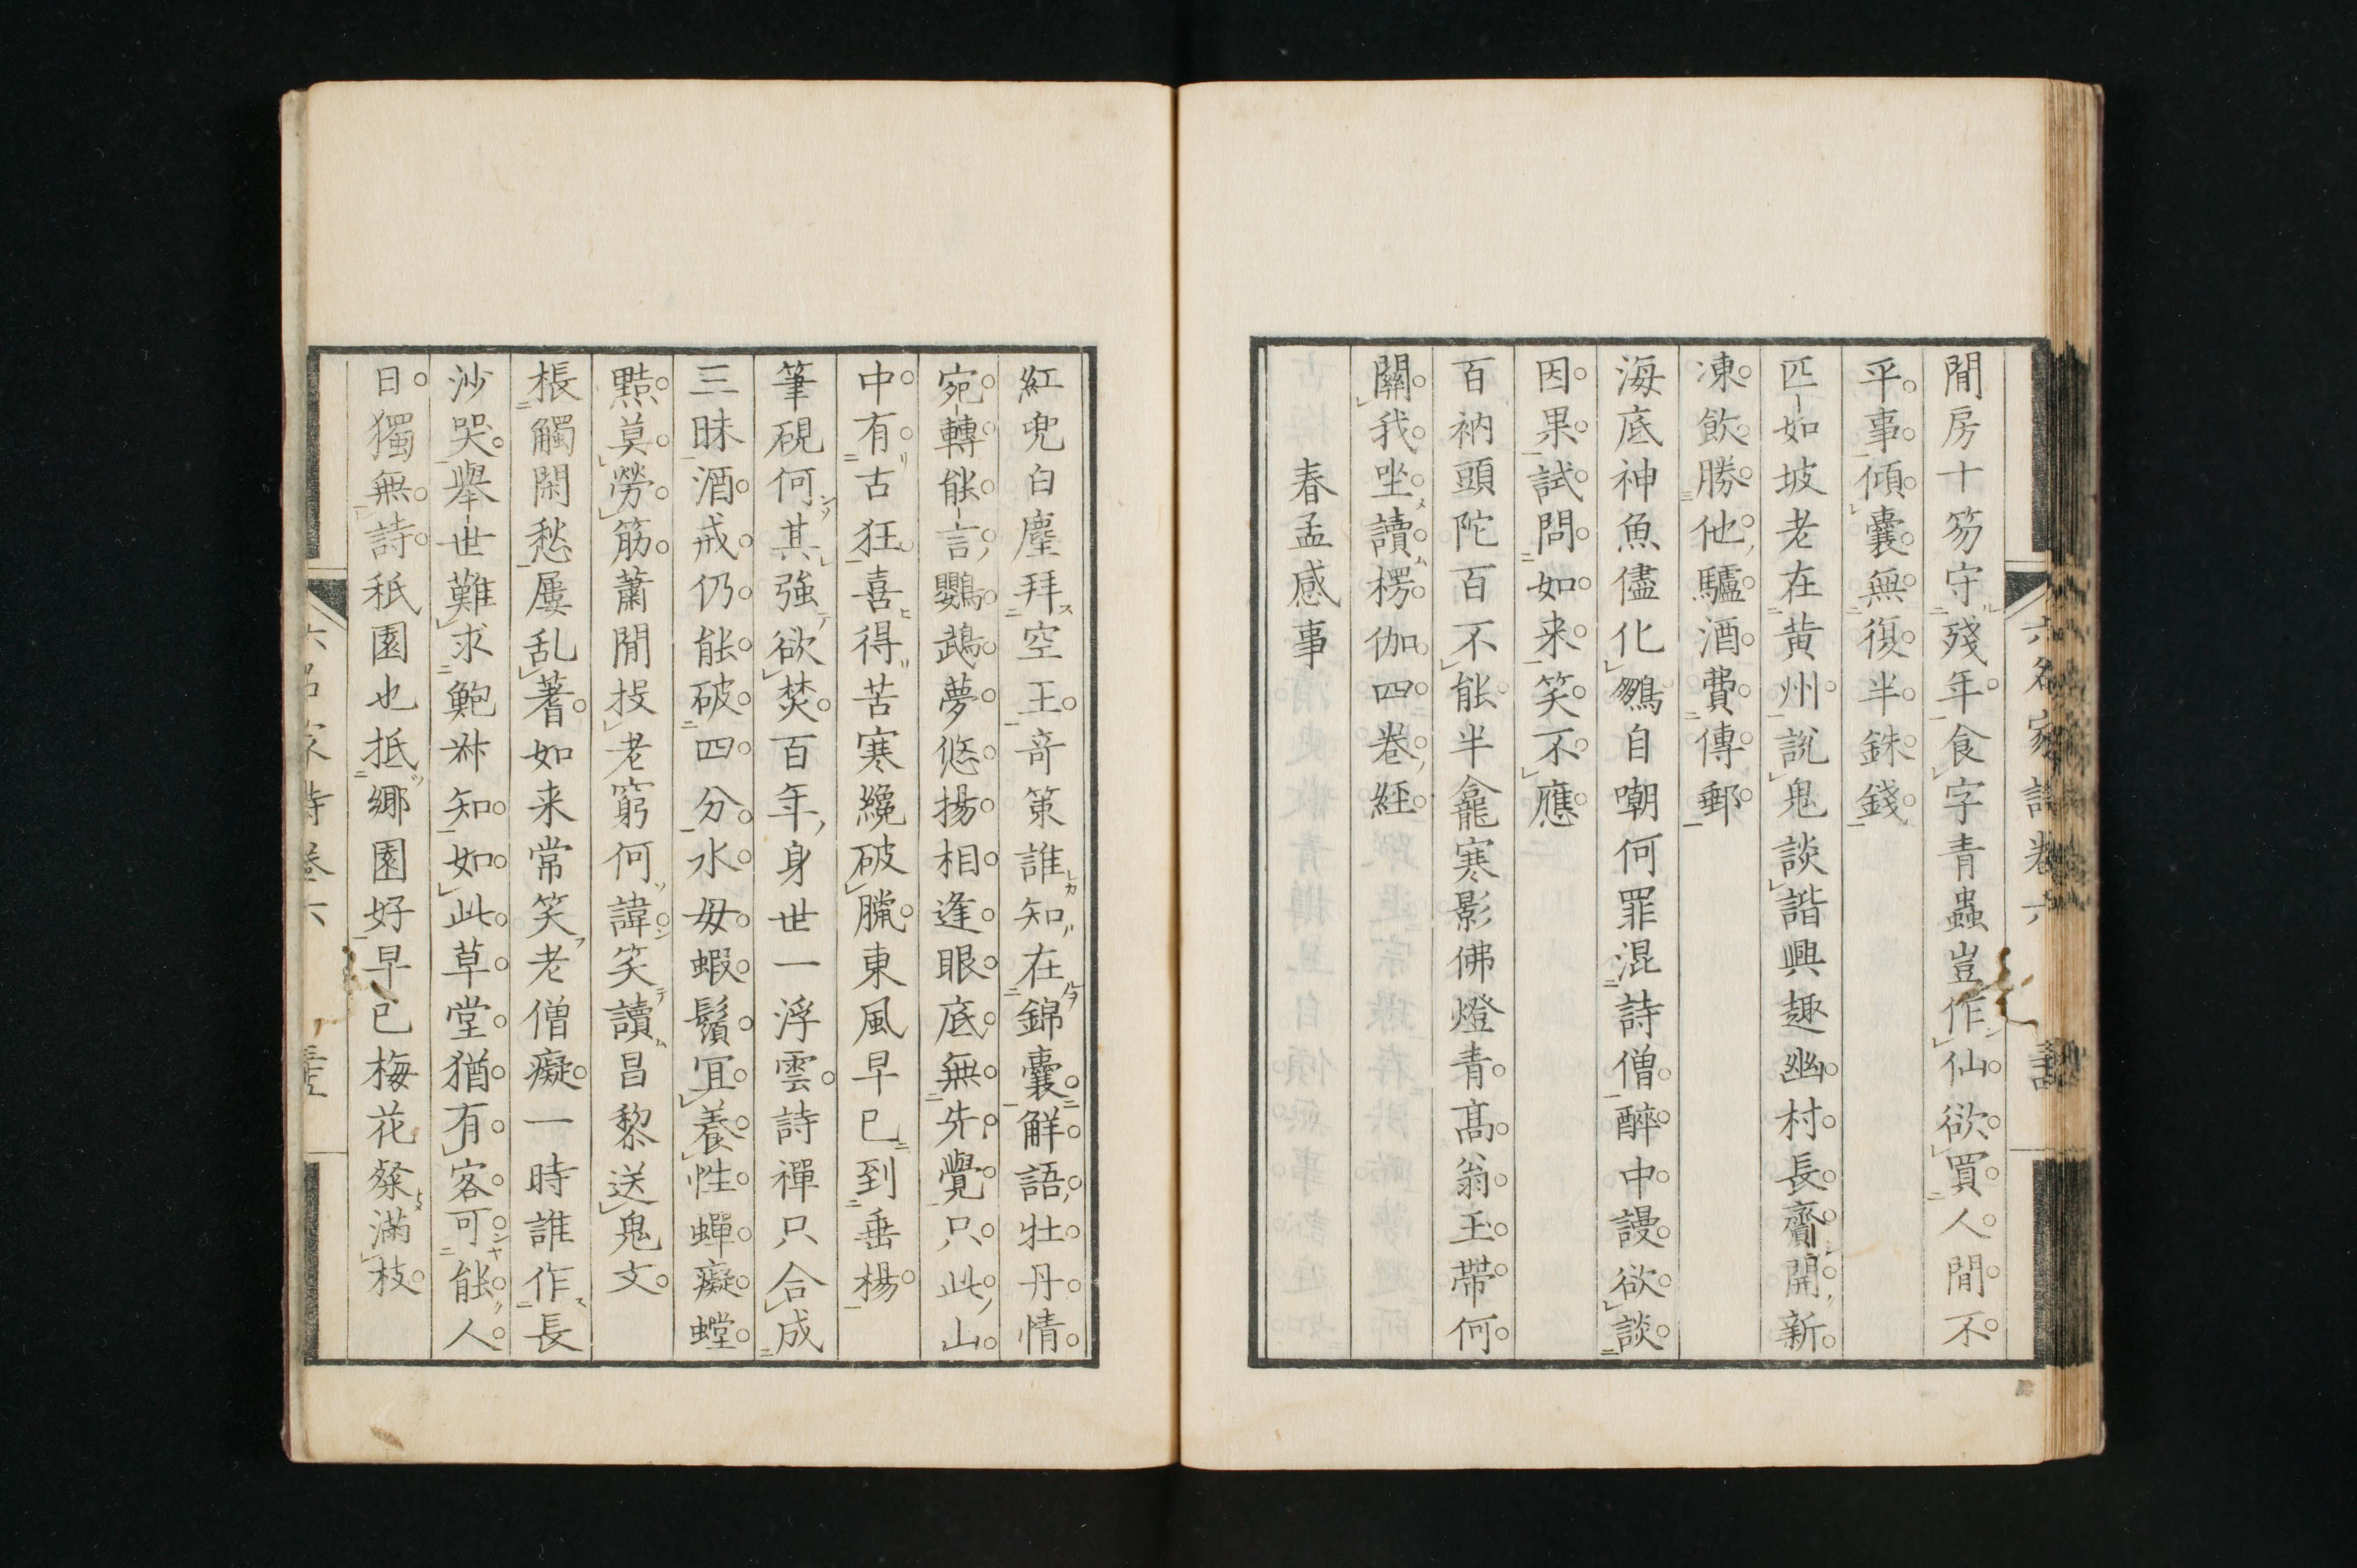 閒房十笏守殘年食字青蟲豈作仙欲買人閒不
平事傾囊無復半銖錢
匹如坡老在黄州説鬼談諧興趣幽村長齎開新
凍飲勝他驢酒費傳郵
海底神魚儘化鶵自嘲何罪混詩僧醉中謾欲談
因果試問如来笑不應
百衲頭陀百不能半龕寒影佛燈青髙翁玉帶何
關我坐讀楞伽四巻経
春孟感事
紅兜白塵拜空王竒策誰知在錦囊觧語牡丹情
宛轉能言鸚鵡夢悠揚相逢眼底無先覺只此山
中有古狂喜得苦寒纔破臘東風早已到垂楊
筆硯何其強欲焚百年身世一浮雲詩禪只合成
三昧酒戒仍能破四分水母蝦鬚冝養性蟬癡螳
黠莫勞筋蕭閒投老窮何諱笑讀昌黎送鬼文
棖觸閑愁屢乱著如来常笑老僧癡一時誰作長
沙哭舉世難求鮑叔知如此草堂猶有客可能人
日獨無詩秖園也抵郷園好早已梅花粲滿枝
六名家詩巻六